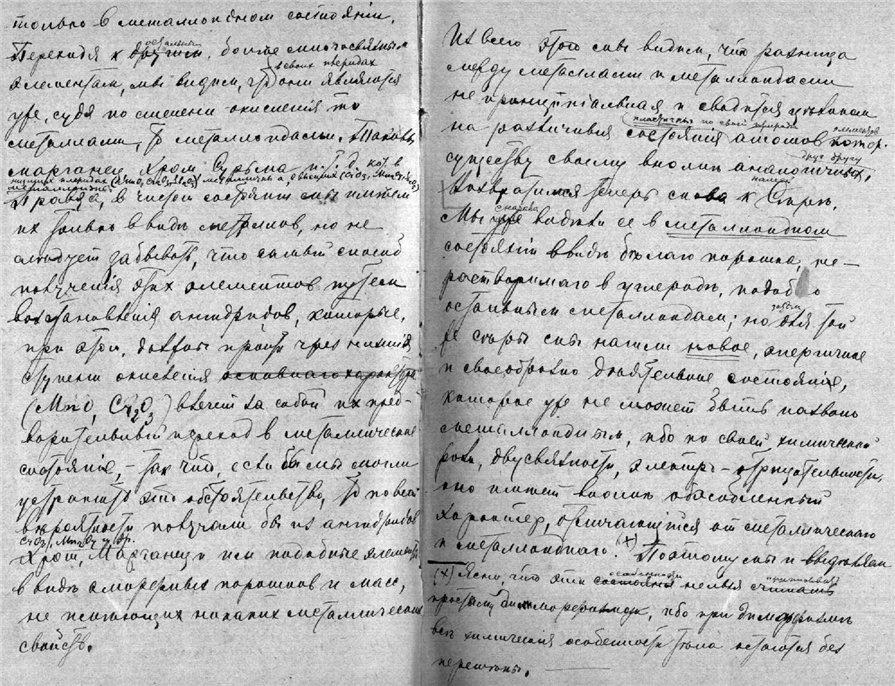 только в металлоидном состоянiи.
Переходя к другим остальным, более многосвязным
элементам, мы видим, что они в своих перiодах являются
уже, судя по степени окисленiя то
металлами, то металлоидами. Таковы
марганец, Хром, Сурьма и т. д.
Правда, в чистом состоянiи мы имеем
их только в виде металлов, но не
следует забывать, что самый способ
полученiя этих элементов путем
возстановленiя ангидридов, которые,
при этом, должны пройти чрез низшiя
ступени окисленiя основнаго характера
(MnO, Cr2O3) влечет за собой их пред-
варительный переход в металлическое
состоянiе, – так что, если бы мы могли
устранить это обстоятельство, то по всей
вероятности получали бы из ангидридов
CrO3, Mn2O7 и др.
Хром, Марганец и им подобные элементы
в виде аморфных порошков и масс,
не имеющих никаких металлических
свойств.
Из всего этого мы видим, что разница
между металлами и металлоидами
не принципiальная и сводится
на различiя состоянiя атомов
существу своему вполне аналогичных.
Возвратимся теперь снова к Сере.
Мы уже видели ее в металлоидном
состоянiи в виде белаго порошка, не–
растворимаго в углероде, подобно
остальным металлоидам; но для той
же серы мы нашли новое, энергичное
и своеобразно деятельное состоянiе,
которое уже не может быть названо
металлоидным, ибо по своей химической
роли, двусвязности, электро–отрицательности,
оно имеет вполне обособленный
характер, отличающiйся от металлическаго
и металлоиднаго. (x) Поэтому мы и выделяем
(x) Ясно, что эти состоянiя особенности нельзя считать приписывать
простому диморфизму, ибо при диморфизме
все химическiя особенности тела остаются без
перемены.